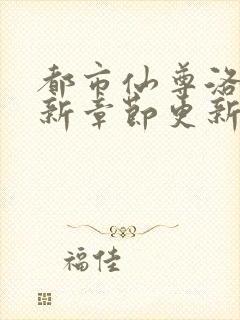 都市仙尊洛
新章节更新
福佳